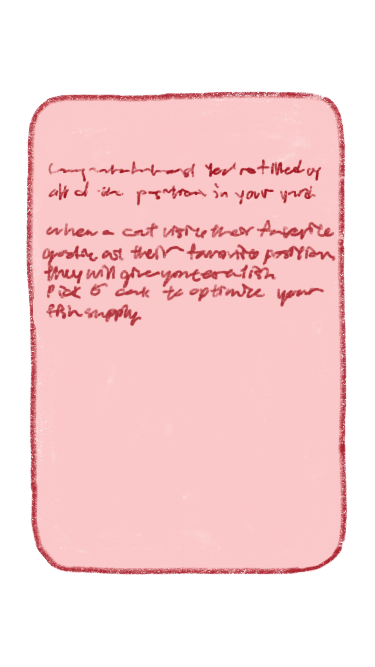 Congratulations! You've filled up
all of the positions in your yard.
when a cat visits their favorite
goodie at their favorite position,
they will give you extra fish
Pick 5 cats to optimize your
fish supply